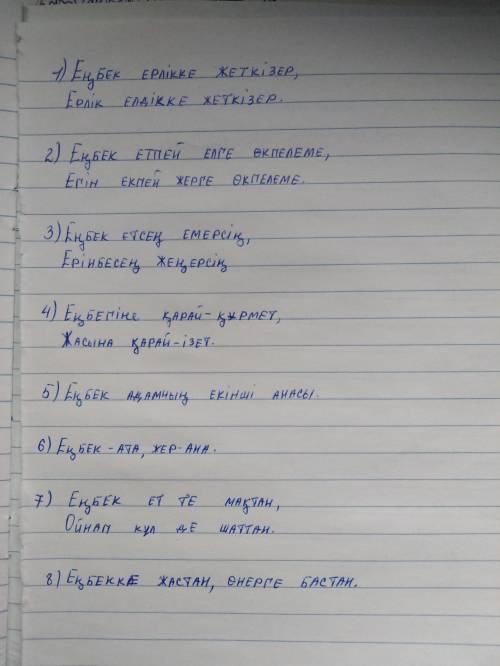 1) Еңбек ерлікке жеткізер,
Ерлік елдікке жеткізер.
2) Еңбек етпей елге өкпелеме,
Егін екпей жерге өкпелеме.
3) Еңбек етсең емерсің,
Ерінбесең жеңерсің
4) Еңбегіне қарай-құрмет,
Жасына қарай-ізет.
5) Еңбек адамның екінші анасы.
6) Еңбек-ата, жер-ана.
7) Еңбек ет те мақтан,
Ойнап күл де шаттан.
8) Еңбекке жастан, өнерге бастан.